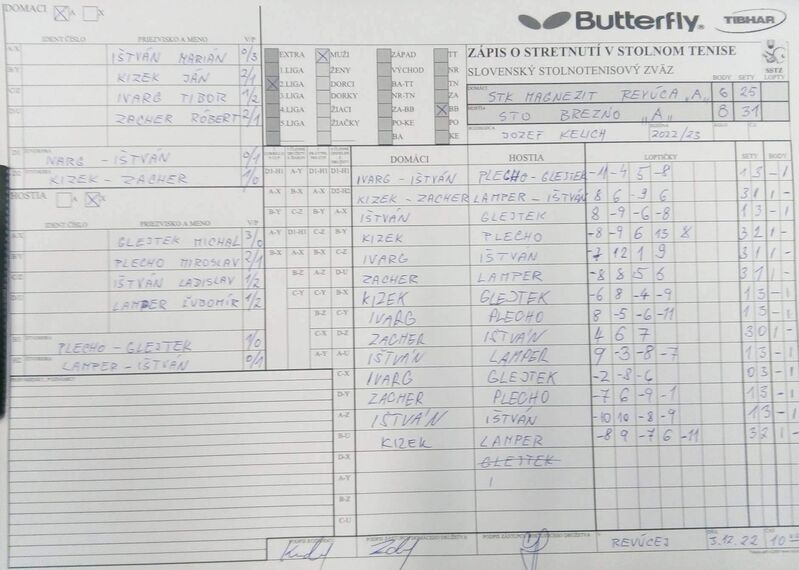 DOMÁCI X A X
Butterfly. TIBHAR
IDENT ČÍSLO PRIEZVISKO A MENO V/P
A-X IŠTVÁN MARIÁN 0/3
B-Y KIZEK JÁN 2/1
C-Z IVARG TIBOR 1/2
D-U ZACHER RÓBERT 2/1
IVARG - IŠTVÁN 0/1
KIZEK - ZACHER 1/0
HOSTIA A X X
IDENT ČÍSLO PRIEZVISKO A MENO V/P
A-X GLEJTEK MICHAL 3/0
B-Y PLECHO MIROSLAV 2/1
C-Z IŠTVÁN LADISLAV 1/2
D-U LAMPER ĽUBOMÍR 1/2
PLECHO - GLEJTEK 1/0
LAMPER - IŠTVÁN 0/1
EXTRA X MUŽI ZÁPAD TT
1.LIGA ŽENY VÝCHOD NR
X 2.LIGA DORCI BA-TT TN
3.LIGA DORKY NR-TN ZA
4.LIGA ŽIACI ZA-BB X BB
5.LIGA ŽIAČKY PO-KE PO
BA KE
ZÁPIS O STRETNUTÍ V STOLNOM TENISE
SLOVENSKÝ STOLNOTENISOVÝ ZVÄZ
SSTZ
BODY SETY LOPTY
STK MAGNEZIT REVÚCA "A" 6 25
HOSTIA STO BREZNO "A" 8 31
JOZEF KELICH 2022/23
DOMÁCI HOSTIA LOPTIČKY SETY BODY
D1-H1 A-Y D1-H1 IVARG - IŠTVÁN PLECHO - GLEJTEK -11 -4 5 -8 1 3 - 1
A-X B-X A-X D2-H2 KIZEK - ZACHER LAMPER - IŠTVÁN 8 6 -9 6 3 1 1 -
B-Y C-Z B-Y A-X IŠTVÁN GLEJTEK 8 -9 -6 -8 1 3 - 1
A-Y D1-H1 C-Z B-Y KIZEK PLECHO -8 -9 6 13 8 3 2 1 -
B-X A-X B-X C-Z IVARG IŠTVÁN -7 12 1 9 3 1 1 -
B-Z A-Z D-U ZACHER LAMPER -8 8 5 6 3 1 1 -
C-Y C-Y B-X KIZEK GLEJTEK -6 8 -4 -9 1 3 - 1
B-Z C-Y IVARG PLECHO 8 -5 -6 -11 1 3 - 1
C-X D-Z ZACHER IŠTVÁN 4 6 7 3 0 1 -
A-Y A-U IŠTVÁN LAMPER 9 -3 -8 -7 1 3 - 1
C-X IVARG GLEJTEK -2 -8 -6 0 3 - 1
D-Y ZACHER PLECHO -7 6 -9 -1 1 3 - 1
A-Z IŠTVÁN IŠTVÁN -10 10 -8 -9 1 3 - 1
B-U KIZEK LAMPER -8 9 -7 6 -11 3 2 1 -
D-X GLEJTEK
A-Y
B-Z
C-U
PODPIS ROZHODCU PODPIS ZÁSTUPCU DOMÁCEHO DRUŽSTVA
V REVÚCEJ DŇA 3.12.22 ČAS 10